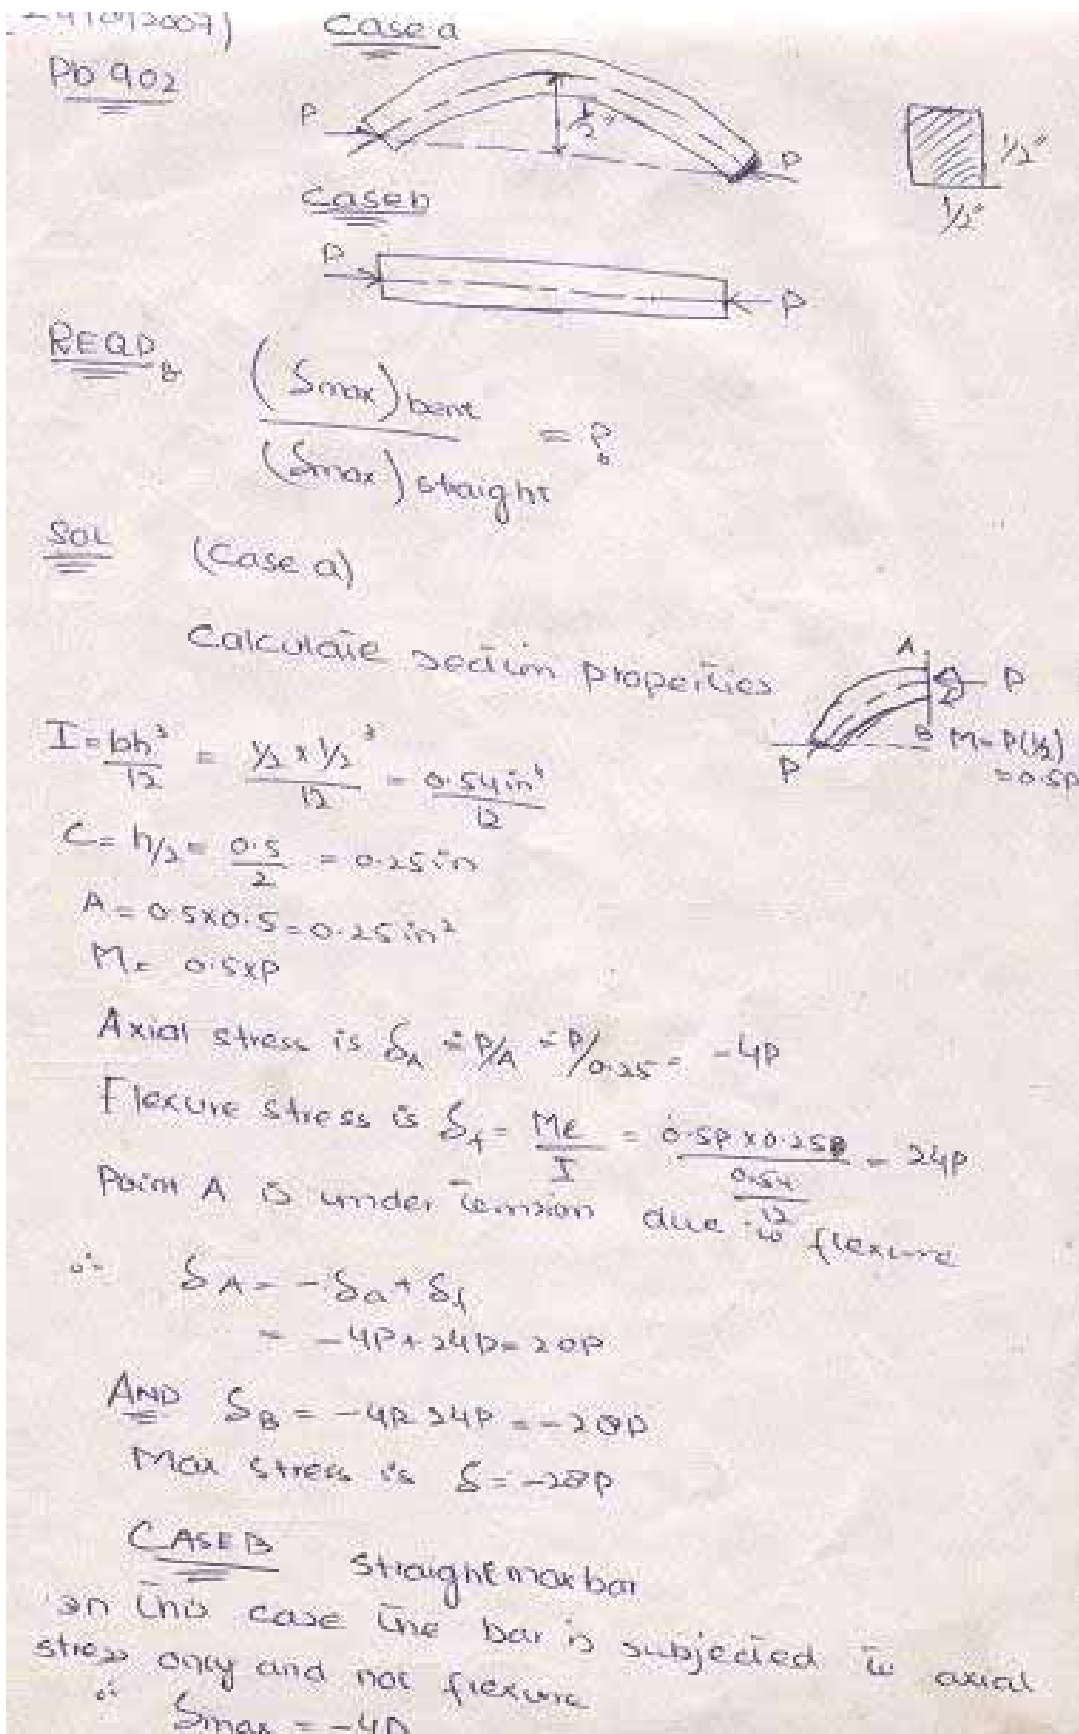 24/09/2007)
Case a
Pb 902
P
1/2"
P
1/2"
1/2"
Case b
P
P
REQD
(Smax) bent
(Smax) straight
= ?
Sol
(Case a)
Calculate section properties
A
P
B
M = P(1/2)
= 0.5P
P
I = bh³/12 = 1/2 x 1/2³/12 = 0.5⁴in⁴/12
C = h/2 = 0.5/2 = 0.25in
A = 0.5x0.5 = 0.25in²
M = 0.5xP
Axial stress is SA = P/A = P/0.25 = -4P
Flexure stress is Sf = Mc/I = 0.5P x 0.25/0.5⁴/12 = 24P
Point A is under tension due to flexure
∴ SA = -Sa + Sf
= -4P + 24P = 20P
AND SB = -4P 24P = -28P
Max stress is S = -28P
CASE B
straight max bar
In this case the bar is subjected to axial
stress only and not flexure
∴ Smax = -4P